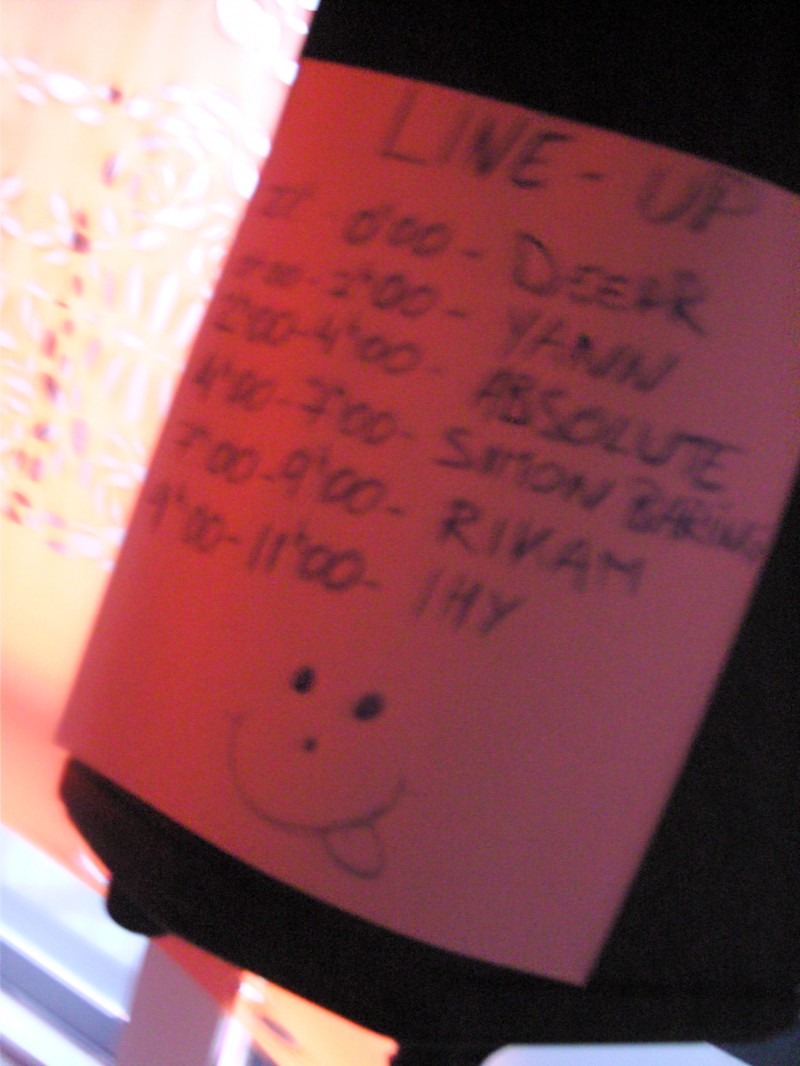 LINE-UP
0h00 - DJEEDR
2h00 - YANN
2h00-4h00 - ABSOLUTE
4h00-7h00 - SIMON BARING
7h00-9h00 - RIKAM
9h00-11h00 - IHY